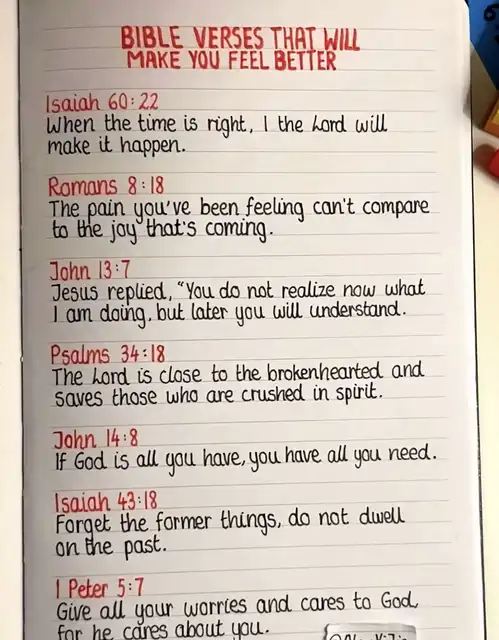 BIBLE VERSES THAT WILL
MAKE YOU FEEL BETTER
Isaiah 60:22
When the time is right, I the Lord will
make it happen.
Romans 8:18
The pain you've been feeling can't compare
to the joy that's coming.
John 13:7
Jesus replied, "You do not realize now what
I am doing, but later you will understand.
Psalms 34:18
The Lord is close to the brokenhearted and
saves those who are crushed in spirit.
John 14:8
If God is all you have, you have all you need.
Isaiah 43:18
Forget the former things, do not dwell
on the past.
1 Peter 5:7
Give all your worries and cares to God,
for he cares about you.